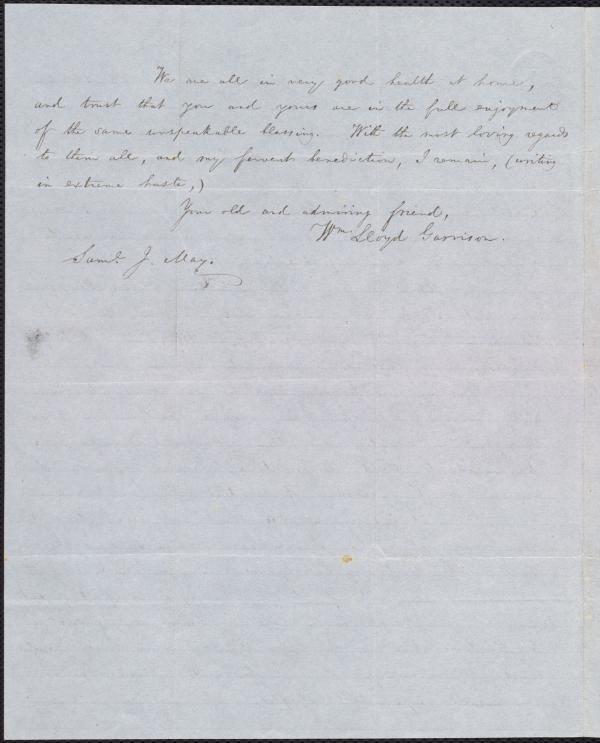 We are all in very good health at home,
and trust that you and yours are in the full enjoyment
of the same unspeakable blessing. With the most loving regards
to them all, and my fervent benediction, I remain, (writing
in extreme haste,)
Your old and admiring friend,
Wm. Lloyd Garrison.
Saml. J. May.